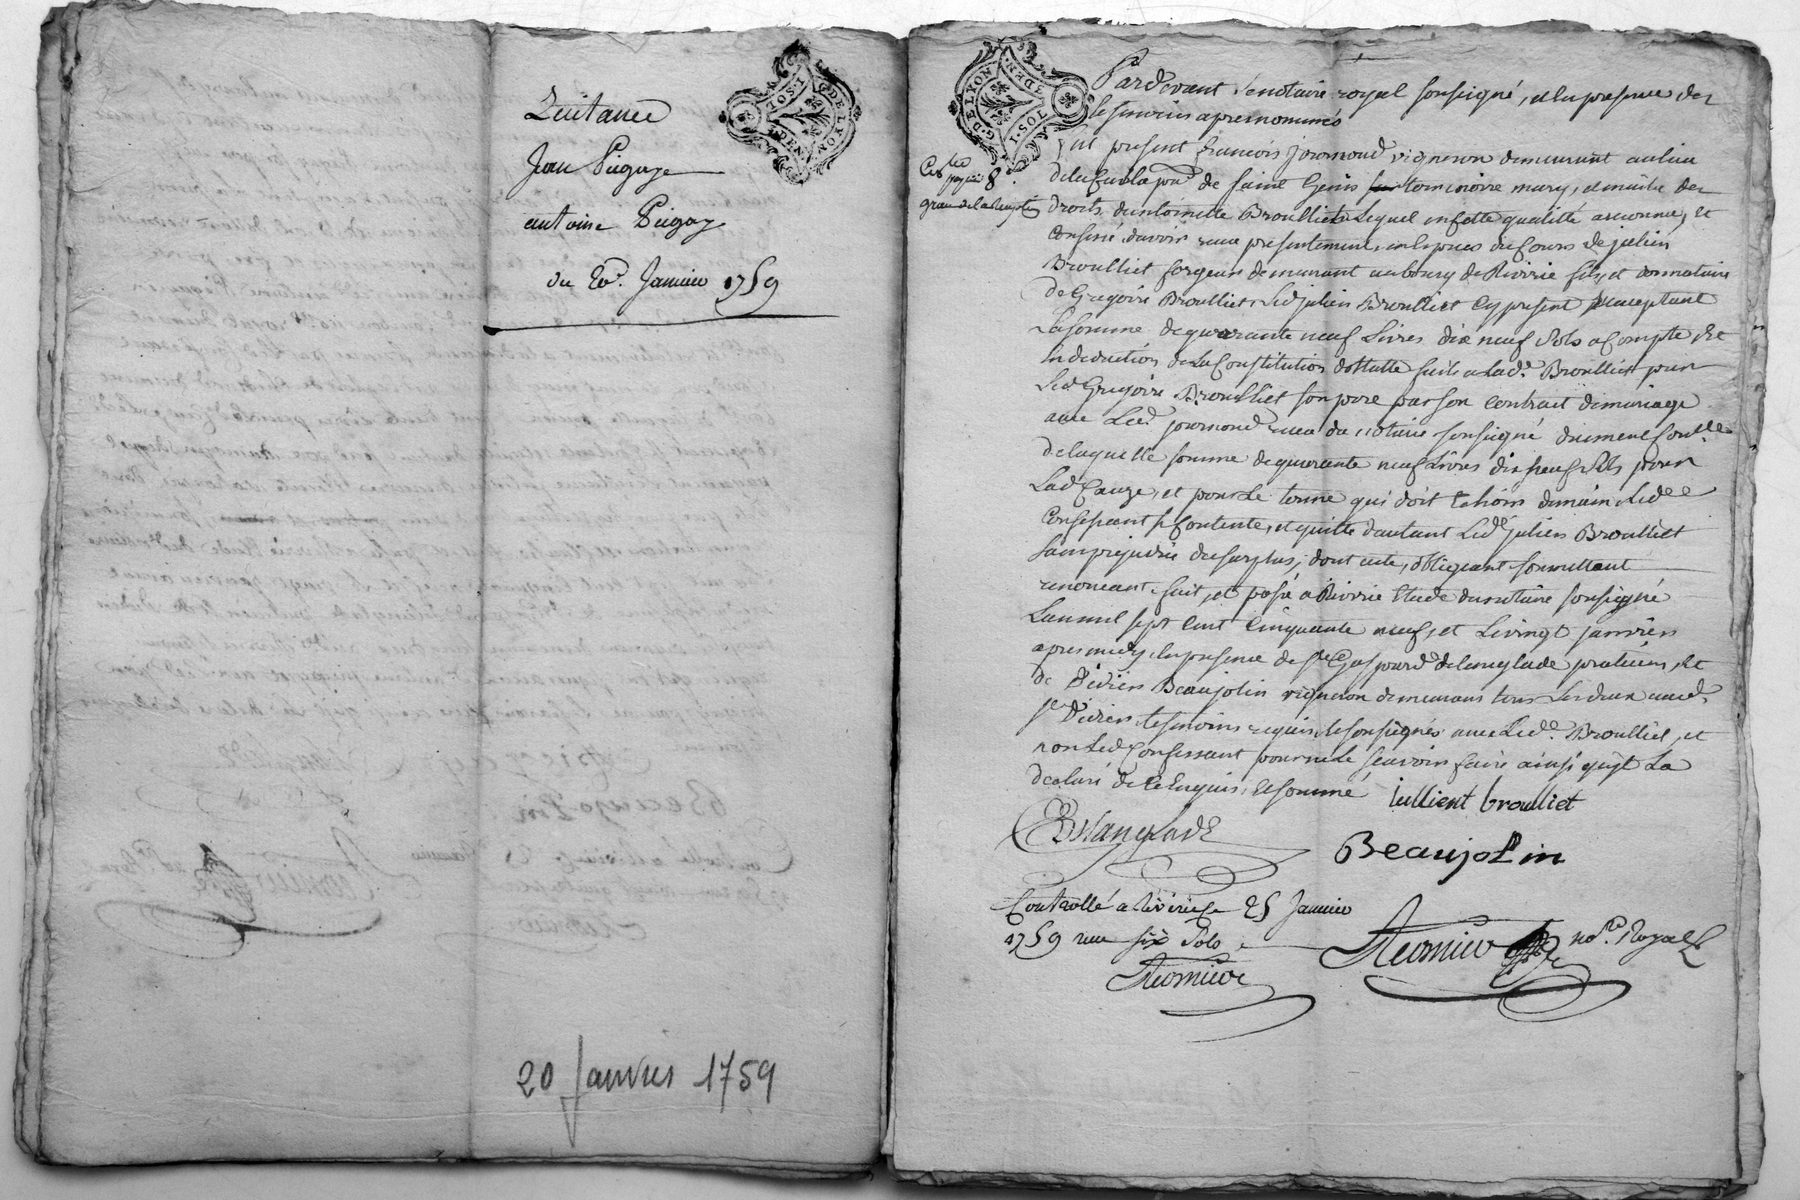 Quitance
Jean Pugaye
antoine Pugay
du 20e. Janvier 1759
20 Janvier 1759
G. DE LYON
Pardevant le notaire royal soussigné, et en presence des
tesmoins apres nommés
fut present françois journoud vigneron demeurant au lieu
de saint Genis mary, et maitre des
droits dantoinette Broulliet Lequel en cette qualitté a reconnu, et
confessé davoir reçu presentement en especes du cours de julien
Broulliet forgeur demeurant au bourg de Riverie fils, et donnataire
de Gregoire Broulliet Led julien Broulliet cy present acceptant
La somme de quarante neuf Livres dix neuf sols a compte et
en deduction de la Constitution dottalle faite a lade. Broulliet par
Led Gregoire Broulliet son pere par son contrait de mariage
avec Led. journoud reçu du notaire soussigné
de laquelle somme de quarante neuf Livres dix neuf sols pour
Lad Cauze, et pour Le terme qui doit echoir demain Led
Confessant se Contente, et quitte dautant Led julien Broulliet
sans prejudice du surplus, dont acte, obligeant soumettant
renonceant, fait, et passé a Riverie Etude du notaire soussigné
Lan mil sept cent cinquante neuf, et Le vingt janvier
apres midy, en presence de sr Gaspard delanglade praticien, et
de Didier Beaujolin vigneron demeurans tous Les deux aud.
st Didier, tesmoins requis, et soussignés avec Led. Broulliet, et
non Led Confessant pour ne le sçavoir faire ainsi quil La
declaré de ce enquis, et sommé jullient broulliet
Delanglade
Beaujolin
Controllé a Riverie Le 25 Janvier
1759 reçu six sols
no.re Royal